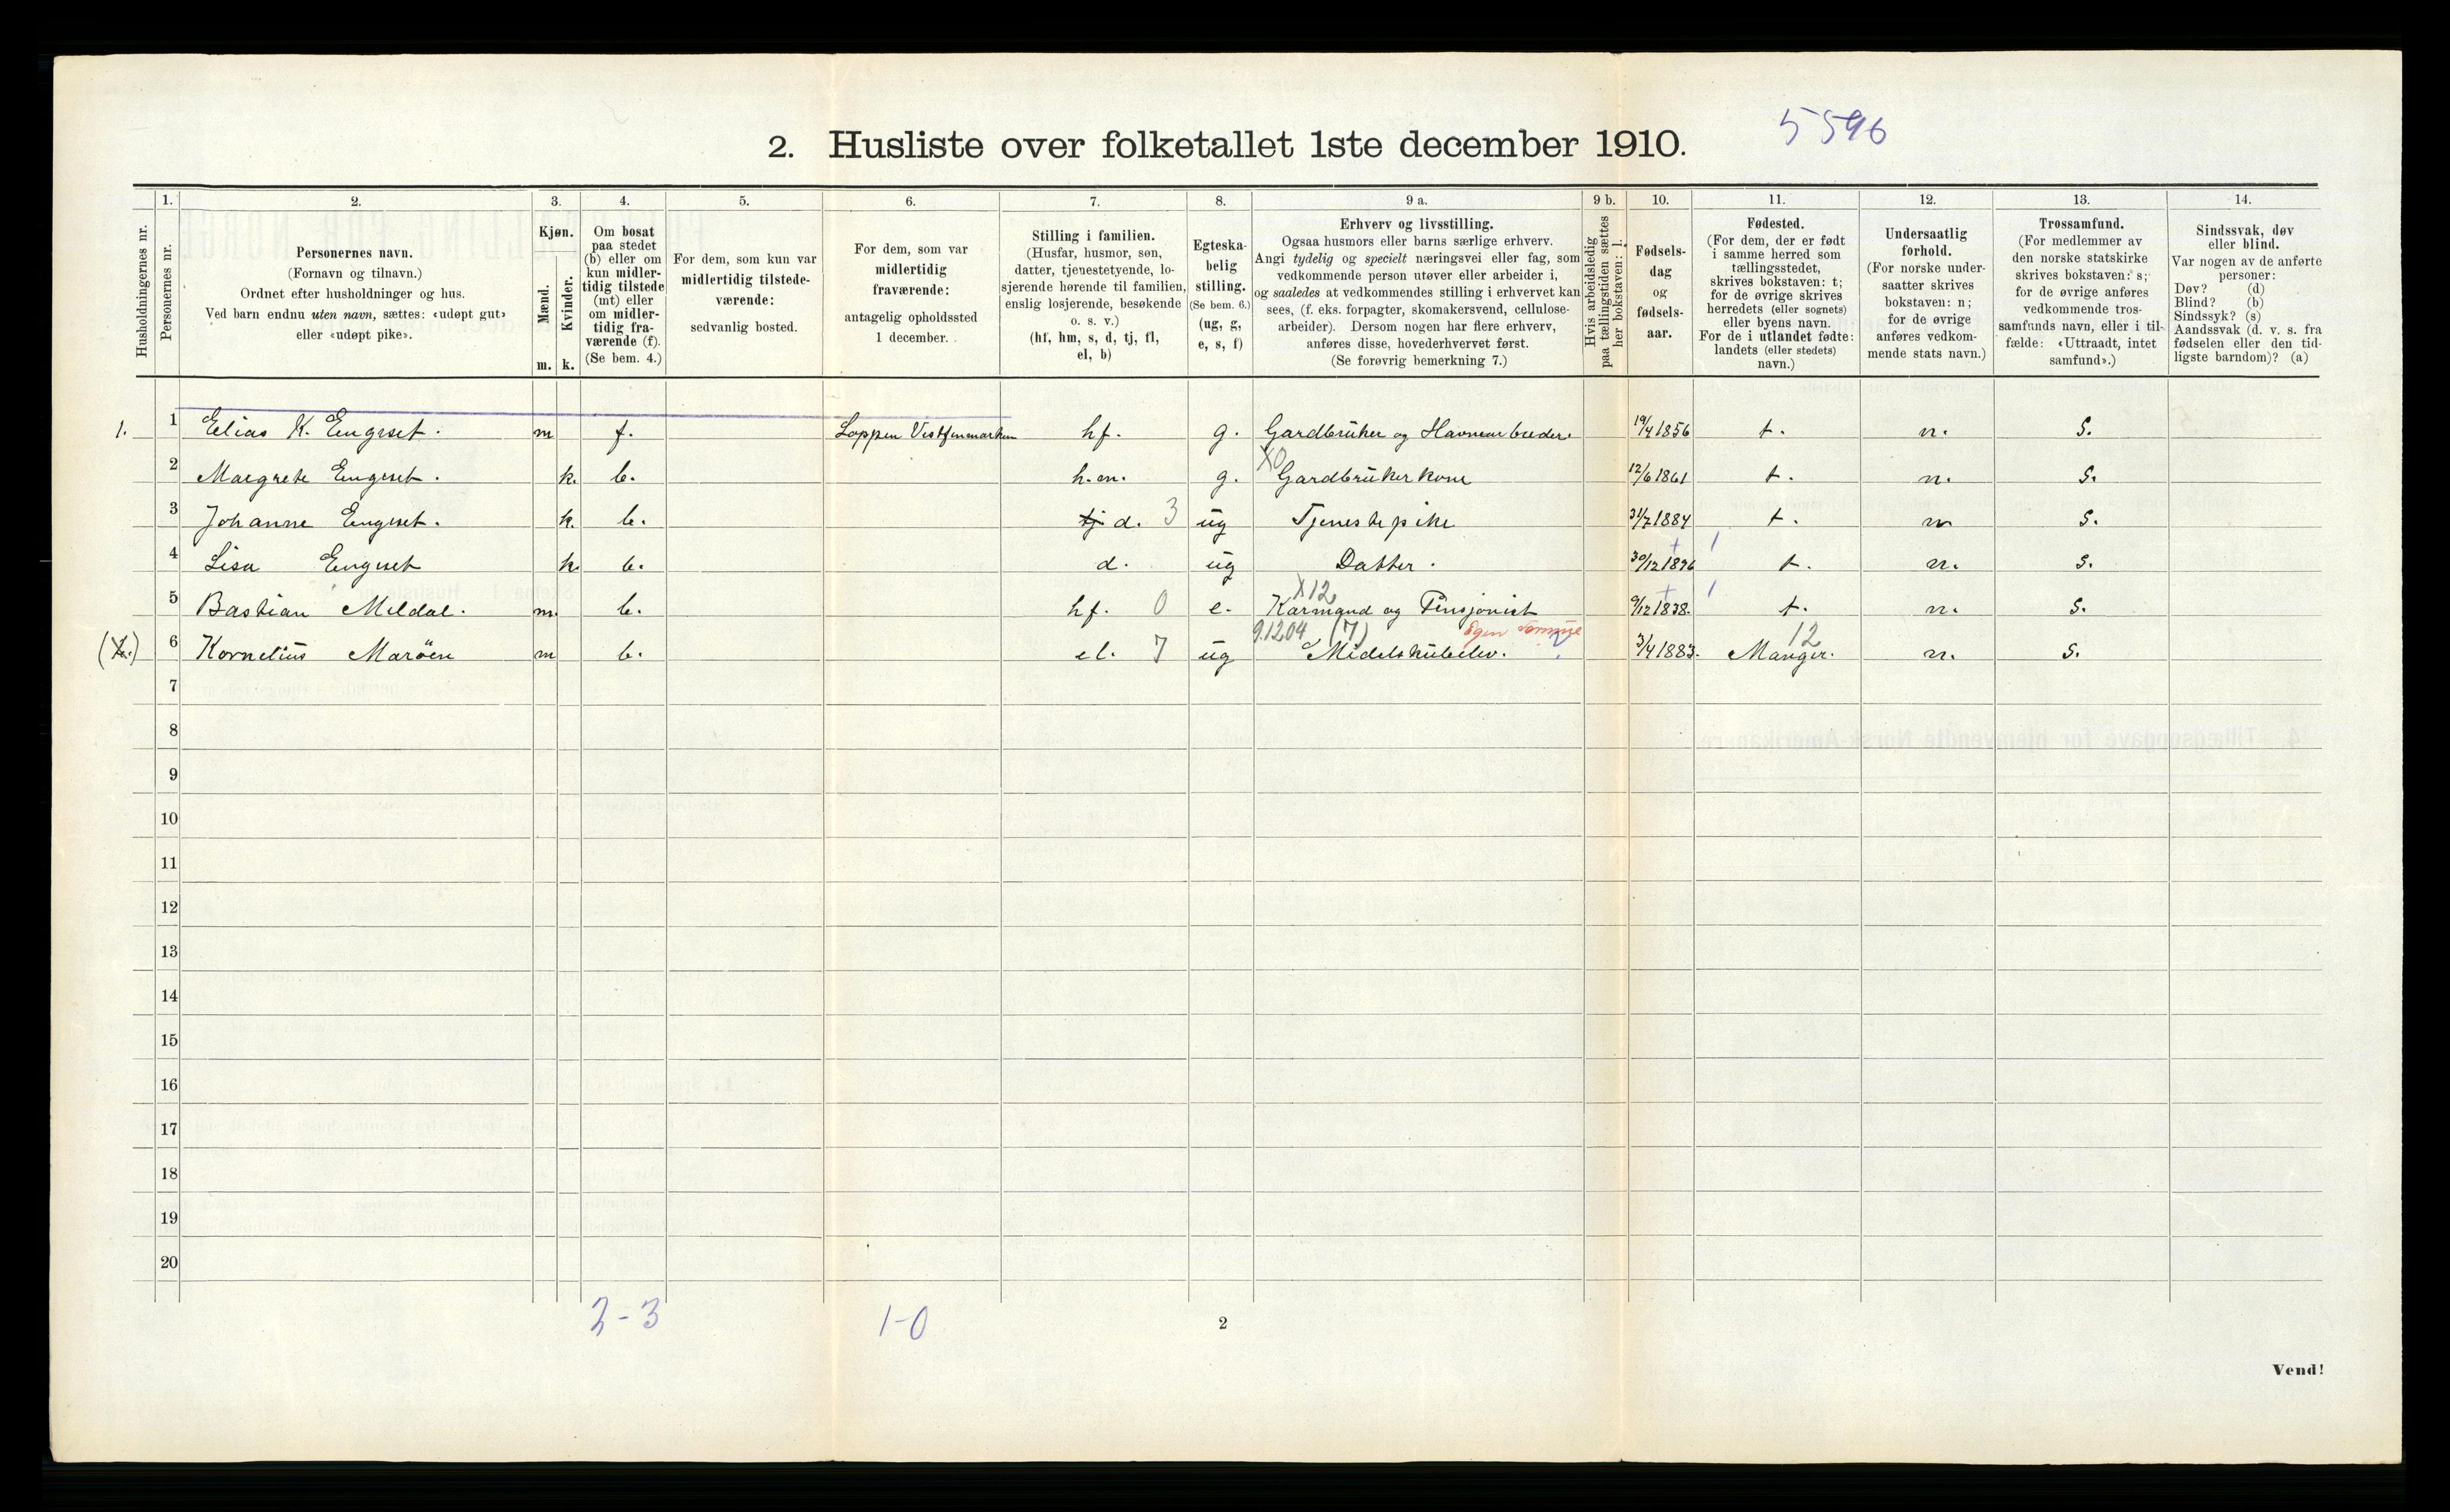 5596
2. Husliste over folketallet 1ste december 1910.
Husholdningernes nr.
1.
Personernes nr.
2.
Personernes navn.
(Fornavn og tilnavn.)
Ordnet efter husholdninger og hus.
Ved barn endnu uten navn, sættes: «udøpt gut»
eller «udøpt pike».
3.
Kjøn.
Mænd.
Kvinder.
m. k.
4.
Om bosat
paa stedet
(b) eller om
kun midler-
tidig tilstede
(mt) eller
om midler-
tidig fra-
værende (f).
(Se bem. 4.)
5.
For dem, som kun var
midlertidig tilstede-
værende:
sedvanlig bosted.
6.
For dem, som var
midlertidig
fraværende:
antagelig opholdssted
1 december.
7.
Stilling i familien.
(Husfar, husmor, søn,
datter, tjenestetyende, lo-
sjerende hørende til familien,
enslig losjerende, besøkende
o. s. v.)
(hf, hm, s, d, tj, fl,
el, b)
8.
Egteska-
belig
stilling.
(Se bem. 6.)
(ug, g,
e, s, f)
9 a.
Erhverv og livsstilling.
Ogsaa husmors eller barns særlige erhverv.
Angi tydelig og specielt næringsvei eller fag, som
vedkommende person utøver eller arbeider i,
og saaledes at vedkommendes stilling i erhvervet kan
sees, (f. eks. forpagter, skomakersvend, cellulose-
arbeider). Dersom nogen har flere erhverv,
anføres disse, hovederhvervet først.
(Se forøvrig bemerkning 7.)
9 b.
Hvis arbeidsledig
paa tællingstiden sættes
her bokstaven: l.
10.
Fødsels-
dag
og
fødsels-
aar.
11.
Fødested.
(For dem, der er født
i samme herred som
tællingsstedet,
skrives bokstaven: t;
for de øvrige skrives
herredets (eller sognets)
eller byens navn.
For de i utlandet fødte:
landets (eller stedets)
navn.)
12.
Undersaatlig
forhold.
(For norske under-
saatter skrives
bokstaven: n;
for de øvrige
anføres vedkom-
mende stats navn.)
13.
Trossamfund.
(For medlemmer av
den norske statskirke
skrives bokstaven: s;
for de øvrige anføres
vedkommende tros-
samfunds navn, eller i til-
fælde: «Uttraadt, intet
samfund».)
14.
Sindssvak, døv
eller blind.
Var nogen av de anførte
personer:
Døv? (d)
Blind? (b)
Sindssyk? (s)
Aandssvak (d. v. s. fra
fødselen eller den tid-
ligste barndom)? (a)
1. 1 Elias K. Engeset. m f. Loppen Vestfinmarken hf. g. Gardbruker og Havnearbeider 19/4 1856 t. n. S.
2 Margrete Engeset. k. b. h.m. g. X0 Gardbrukerkone 12/6 1861 t. n. S.
3 Johanne Engeset. k. b. tj d. 3 ug Tjenestepike 31/7 1884 t. n S.
4 Lisa Engeset k. b. d. ug Datter. 30/12 1896 t. n. S.
5 Bastian Meldal. m. b. hf. 0 e. X12 Kaarmand og Pensjonist 9/12 1838. t. n. S.
6 Kornelius Marøen m b. el. 7 ug 9.12.04 (7) Egen Midelskuleelev. 3/4 1883. 12 Manger. n. S.
7
8
9
10
11
12
13
14
15
16
17
18
19
20
2-3 1-0
2
Vend!